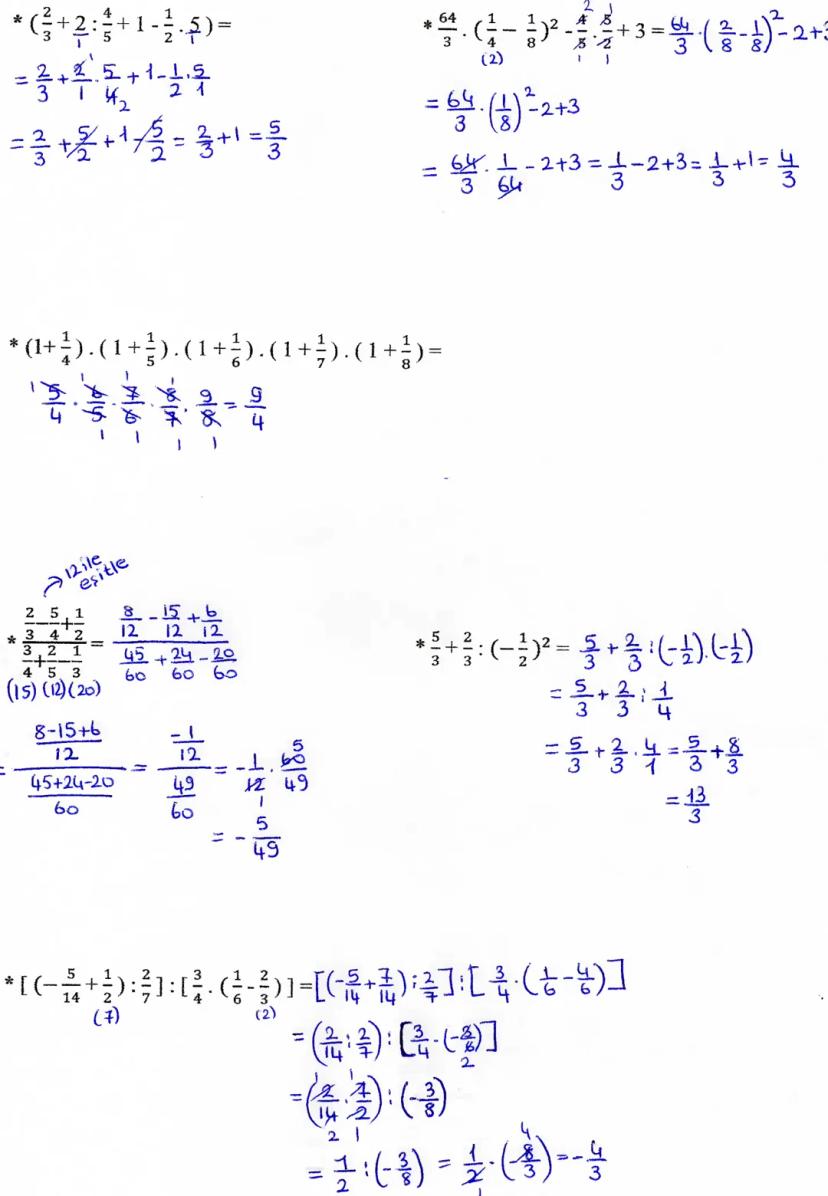 * (2/3 + 2 : 4/5 + 1 - 1/2 . 5) =
1 1
= 2/3 + 2/1 . 5/4 + 1 - 1/2 . 5/1
1 2
= 2/3 + 5/2 + 1 - 5/2 = 2/3 + 1 = 5/3
* 64/3 . (1/4 - 1/8)² - 4/5 . 5/2 + 3 = 64/3 . (2/8 - 1/8)² - 2 + 3
(2) 2 1 1 1
= 64/3 . (1/8)² - 2 + 3
= 64/3 . 1/64 - 2 + 3 = 1/3 - 2 + 3 = 1/3 + 1 = 4/3
* (1+1/4) . (1+1/5) . (1+1/6) . (1+1/7) . (1+1/8) =
1 1 1 1
5/4 . 6/5 . 7/6 . 8/7 . 9/8 = 9/4
1 1 1 1
→ 12 ile
eşitle
* (2/3 - 5/4 + 1/2)/(3/4 + 2/5 - 1/3) = (8/12 - 15/12 + 6/12)/(45/60 + 24/60 - 20/60)
(15) (12) (20)
= ((8-15+6)/12)/((45+24-20)/60) = (-1/12)/(49/60) = -1/12 . 60/49
5 1
= - 5/49
* 5/3 + 2/3 : (-1/2)² = 5/3 + 2/3 : (-1/2).(-1/2)
= 5/3 + 2/3 : 1/4
= 5/3 + 2/3 . 4/1 = 5/3 + 8/3
= 13/3
* [ (-5/14 + 1/2) : 2/7 ] : [ 3/4 . (1/6 - 2/3) ] = [(-5/14 + 7/14) : 2/7] : [3/4 . (1/6 - 4/6)]
(7) (2)
= (2/14 : 2/7) : [3/4 . (-3/6)]
2
= (2/14 . 7/2) : (-3/8)
1 1 2 1
= 1/2 : (-3/8) = 1/2 . (-8/3) = -4/3
4 1